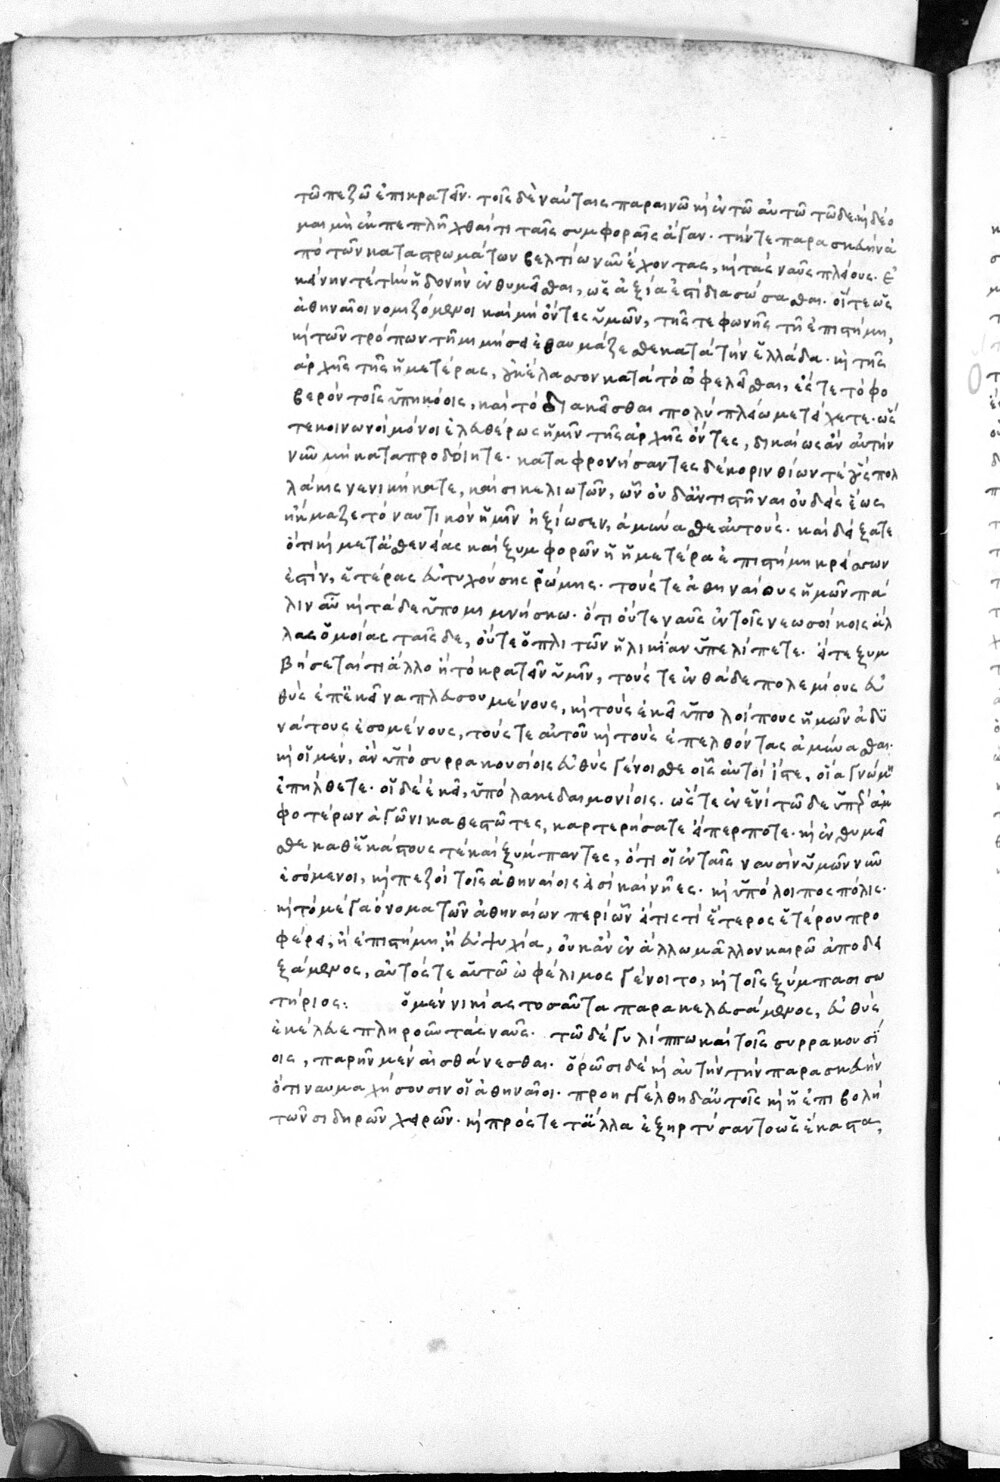 τῶ πεζῶ ἐπικρατεῖν· τοῖς δὲ ναύταις παραινῶ κ(αὶ) ἐν τῶ αὐτῶ τῶδε κ(αὶ) δέο
μαι μὴ ἐκπεπλῆχθαί τι ταῖς συμφοραῖς ἄγαν· τήν τε παρασκευὴν ἀ
πὸ τῶν καταστρωμάτων βελτίω νῦν ἔχοντας, κ(αὶ) τὰς ναῦς πλείους· ἐ
κείνην τέ τὴν ἡδονὴν ἐνθυμεῖσθαι, ὡς ἀξία ἐστὶ διασώσασθαι· οἵ τέως
ἀθηναῖοι νομιζόμενοι καὶ μὴ ὄντες ὑμῶν, τῆς τε φωνῆς τῆ ἐπιστήμη,
κ(αὶ) τῶν τρόπων τῆ μιμήσει ἐθαυμάζεσθε κατὰ τὴν ἑλλάδα· κ(αὶ) τῆς
ἀρχῆς τῆς ἡμετέρας, οὐκ ἔλασσον κατὰ τὸ ὠφελεῖσθαι, ἔς τε τὸ φο
βερὸν τοῖς ὑπηκόοις, καὶ τὸ ἀδικεῖσθαι πολὺ πλεῖω μετείχετε· ὥς
τε κοινωνοὶ μόνοι ἐλευθέρως ἡμῖν τῆς ἀρχῆς ὄντες, δικαίως ἂν αὐτὴν
νῦν μὴ καταπροδίδοτε· καταφρονήσαντες δὲ κορινθίων τέ οὓς πολ
λάκις νενικήκατε, καὶ σικελιωτῶν, ὧν οὐδ ἀντιστῆναι οὐδεὶς ἕως
ἤκμαζε τὸ ναυτικὸν ἡμῖν ἠξίωσεν, ἀμύνασθε αὐτούς· καὶ δείξατε
ὅτι κ(αὶ) μετ ἀσθενείας καὶ ξυμφορῶν ἡ ἡμετέρα ἐπιστήμη κρείσσων
ἐστὶν, ἑτέρας εὐτυχούσης ῥώμης· τούς τε ἀθηναίους ἡμῶν πά
λιν αὖ κ(αὶ) τάδε ὑπομιμνήσκω· ὅτι οὔτε ναῦς ἐν τοῖς νεωσοίκοις ἄλ
λας ὁμοίας ταῖσδε, οὔτε ὁπλιτῶν ἡλικίαν ὑπελίπετε· εἴ τε ξυμ
βήσεταί τι ἄλλο ἢ τὸ κρατεῖν ὑμῖν, τούς τε ἐνθάδε πολεμίους εὐ
θὺς ἐπ ἐκεῖνα πλευσουμένους, κ(αὶ) τοὺς ἐκεῖ ὑπολοίπους ἡμῶν ἀδυ
νάτους ἐσομένους, τούς τε αὐτοῦ κ(αὶ) τοὺς ἐπελθόντας ἀμύνασθαι·
κ(αὶ) οἱ μὲν, ἂν ὑπὸ συρρακουσίοις εὐθὺς γένοισθε οἷς αὐτοὶ ἴστε, οἵα γνώμη
ἐπήλθετε· οἱ δὲ ἐκεῖ, ὑπὸ λακεδαιμονίοις· ὥστε ἐν ἑνὶ τῶδε ὑπὲρ ἀμ
φοτέρων ἀγῶνι καθεστῶτες, καρτερήσατε εἴπερ ποτε· κ(αὶ) ἐνθυμεῖ
σθε καθ ἑκάστους τέ καὶ ξύμπαντες, ὅτι οἱ ἐν ταῖς ναυσὶν ὑμῶν νῦν
ἐσόμενοι, κ(αὶ) πεζοὶ τοῖς ἀθηναίοις εἰσὶ καὶ νῆες· κ(αὶ) ὑπόλοιπος πόλις·
κ(αὶ) τὸ μέγα ὄνομα τῶν ἀθηναίων περὶ ὧν εἴ τίς τι ἕτερος ἑτέρου προ
φέρει, ἢ ἐπιστήμη, ἢ εὐψυχία, οὐκ ἂν ἐν ἄλλω μᾶλλον καιρῶ ἀποδει
ξάμενος, αὐτός τε αὑτῶ ὠφέλιμος γένοιτο, κ(αὶ) τοῖς ξύμπασι σω
τήριος: ὁ μὲν νικίας τοσαῦτα παρακελευσάμενος, εὐθὺς
ἐκέλευε πληροῦν τὰς ναῦς· τῶ δὲ γυλίππω καὶ τοῖς συρρακουσί
οις, παρῆν μὲν αἰσθάνεσθαι· ὁρῶσι δὲ κ(αὶ) αὐτὴν τὴν παρασκευὴν
ὅτι ναυμαχήσουσιν οἱ ἀθηναῖοι· προηγγέλθη δ αὐτοῖς κ(αὶ) ἡ ἐπιβολὴ
τῶν σιδηρῶν χειρῶν· κ(αὶ) πρός τε τἄλλα ἐξηρτύσαντο ὡς ἕκαστα,